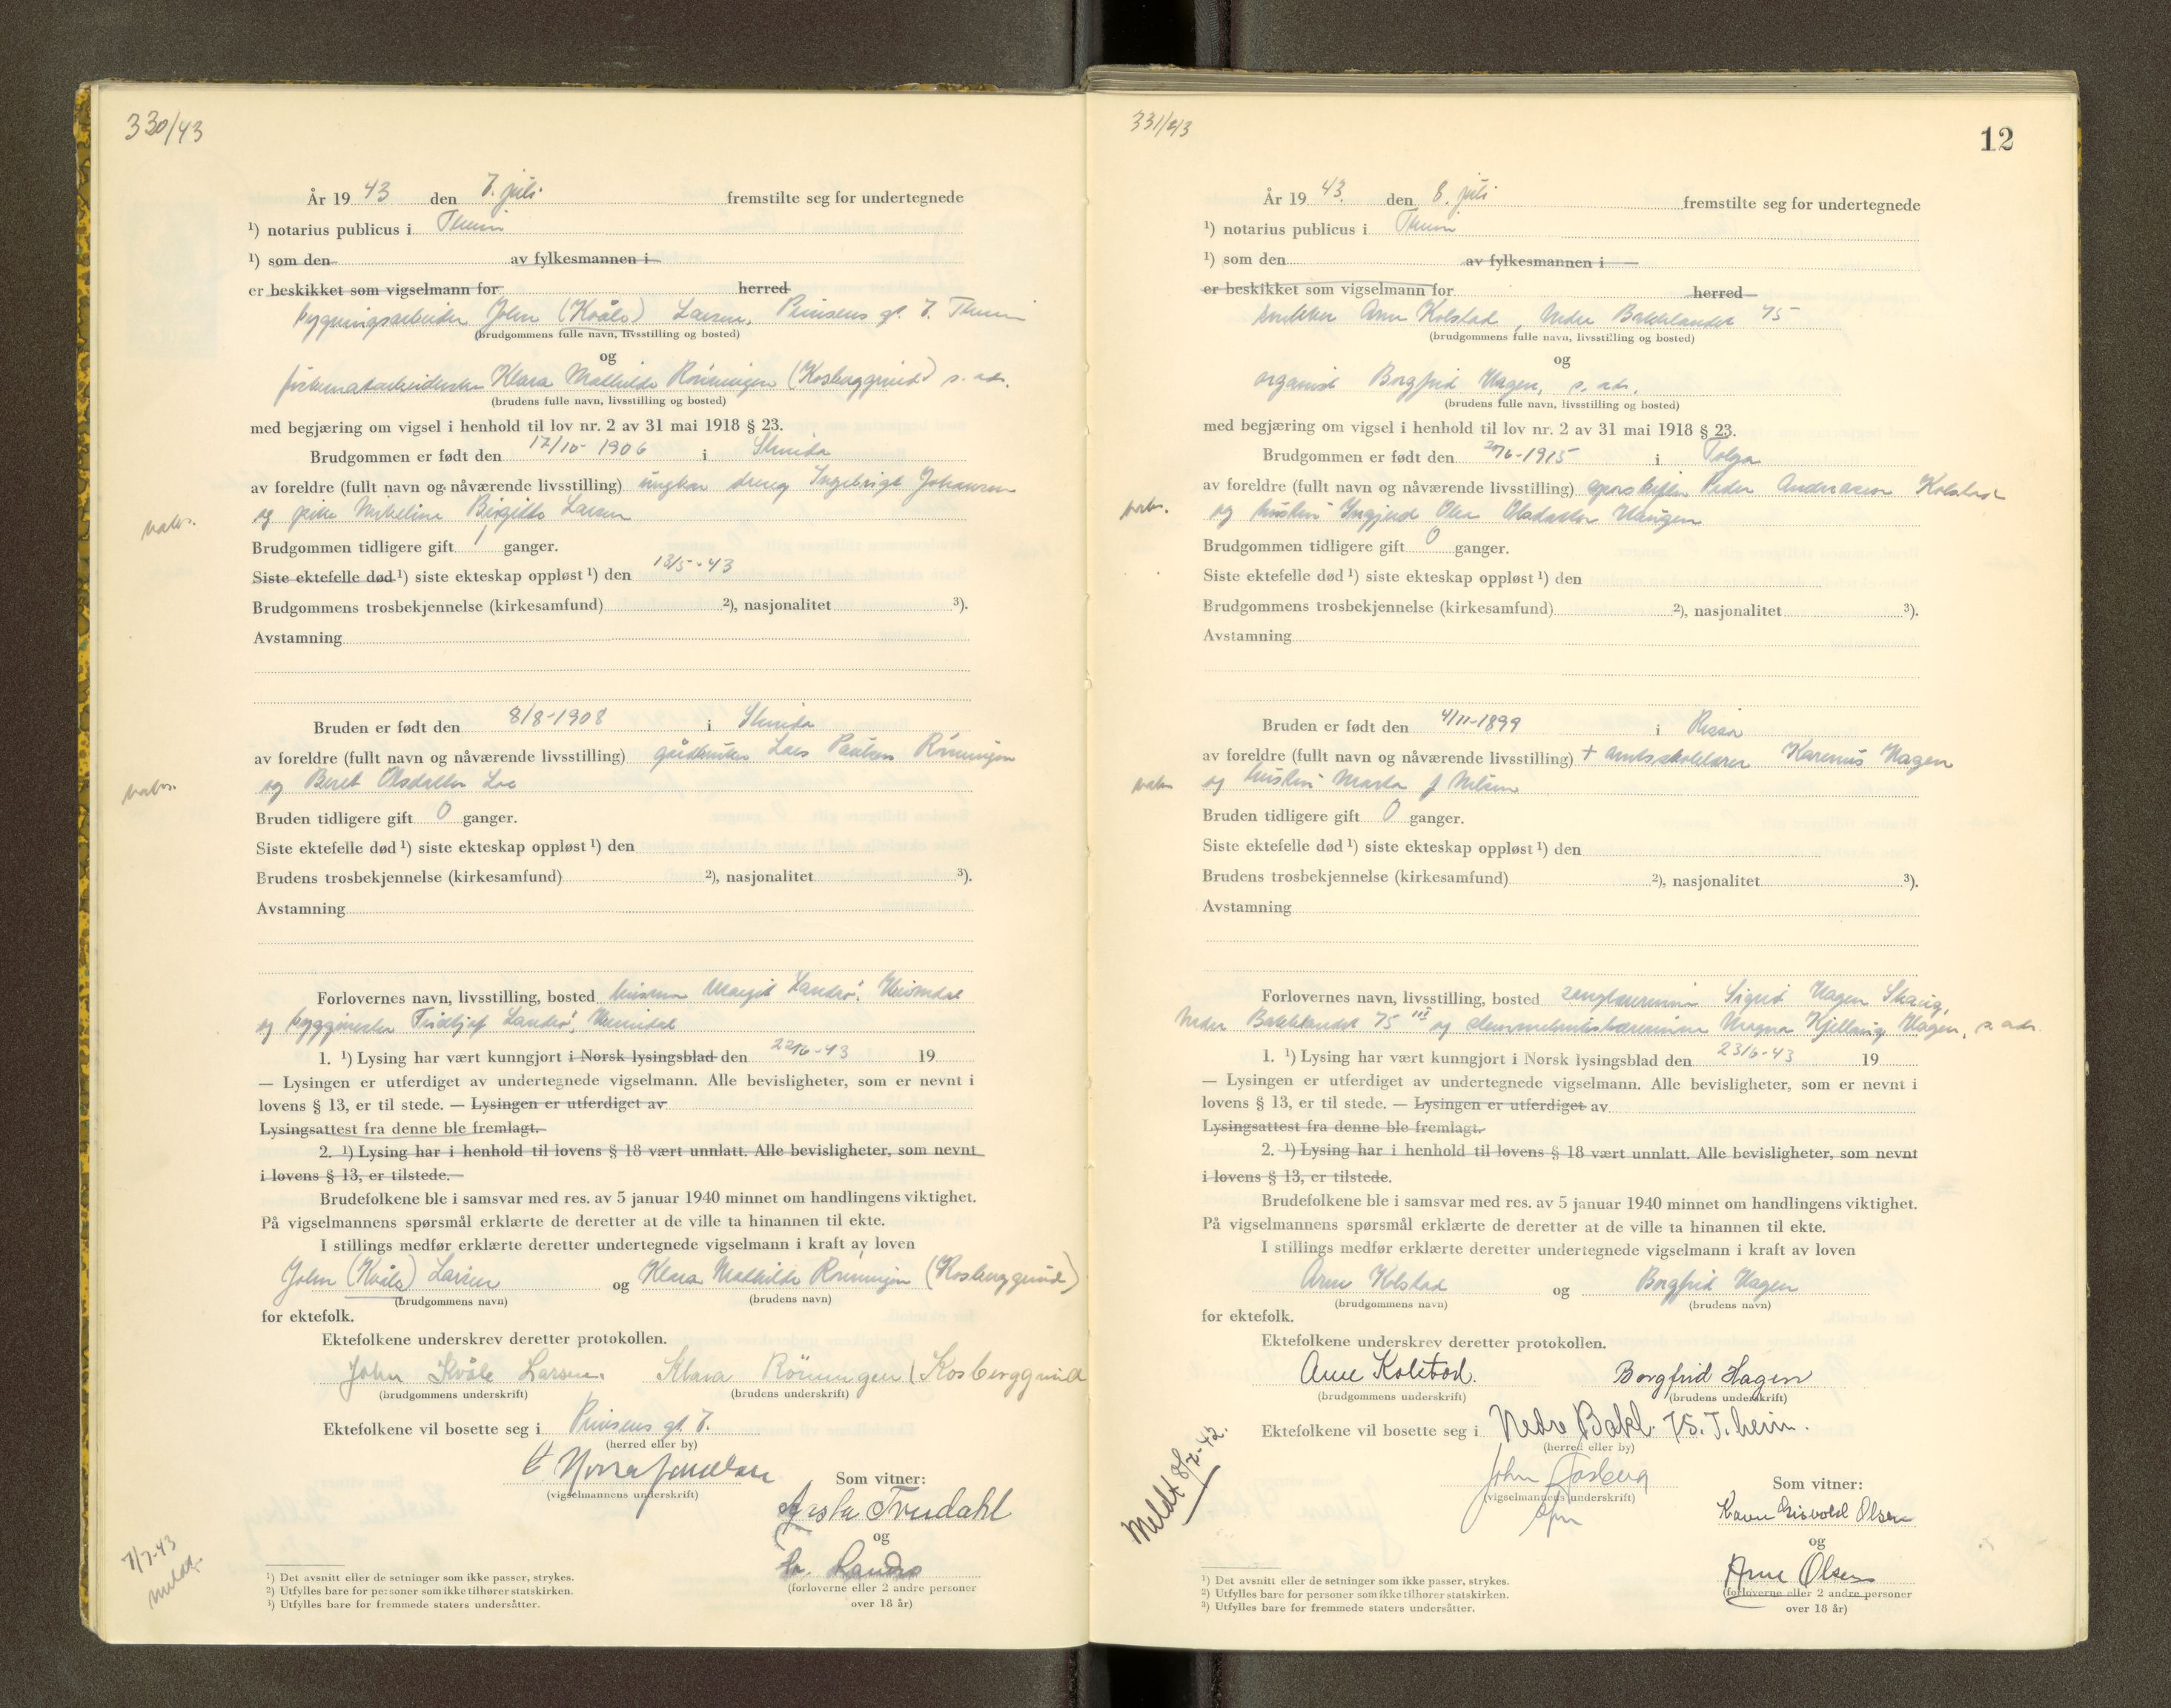 330/43
År 19 43 den 7. juli fremstilte seg for undertegnede
¹) notarius publicus i Theim
¹) som den av fylkesmannen i
er beskikket som vigselmann for herred
bygningsarbeider John (Kvåle) Larsen, Prinsens gt. 7. Theim
(brudgommens fulle navn, livsstilling og bosted)
og
Klara Mathilde Rönningen (Kosberggrind) s. adr.
(brudens fulle navn, livsstilling og bosted)
med begjæring om vigsel i henhold til lov nr. 2 av 31 mai 1918 § 23.
Brudgommen er født den 17/10-1906 i
av foreldre (fullt navn og nåværende livsstilling) ungkar dreng Ingebrigt Johansen
og pike Birgitte Larsen
Brudgommen tidligere gift 1 ganger.
Siste ektefelle død ¹) siste ekteskap oppløst ¹) den 13/5-43
Brudgommens trosbekjennelse (kirkesamfund) ²), nasjonalitet ³).
Avstamning
Bruden er født den 8/8-1908 i
av foreldre (fullt navn og nåværende livsstilling) gårdbruker Lars Paulsen Rönningen
og Beret Olsdatter Loe
Bruden tidligere gift 0 ganger.
Siste ektefelle død ¹) siste ekteskap oppløst ¹) den
Brudens trosbekjennelse (kirkesamfund) ²), nasjonalitet ³).
Avstamning
Forlovernes navn, livsstilling, bosted Margit Landrö, Heimdal
og byggmester Fridtjof Landrö, Heimdal
1. ¹) Lysing har vært kunngjort i Norsk lysingsblad den 22/6-43 19
— Lysingen er utferdiget av undertegnede vigselmann. Alle bevisligheter, som er nevnt i
lovens § 13, er til stede. — Lysingen er utferdiget av
Lysingsattest fra denne ble fremlagt.
2. ¹) Lysing har i henhold til lovens § 18 vært unnlatt. Alle bevisligheter, som nevnt
i lovens § 13, er tilstede.
Brudefolkene ble i samsvar med res. av 5 januar 1940 minnet om handlingens viktighet.
På vigselmannens spørsmål erklærte de deretter at de ville ta hinannen til ekte.
I stillings medfør erklærte deretter undertegnede vigselmann i kraft av loven
John (Kvåle) Larsen og Klara Mathilde Rönningen (Kosberggrind)
(brudgommens navn) (brudens navn)
for ektefolk.
Ektefolkene underskrev deretter protokollen.
John Kvåle Larsen. Klara Rönningen (Kosberggrind
(brudgommens underskrift) (brudens underskrift)
Ektefolkene vil bosette seg i Prinsens gt. 7.
(herred eller by)
(vigselmannens underskrift)
Som vitner:
Trudahl
og
Landrö
(forloverne eller 2 andre personer
over 18 år)
7/7-43
meldt.
¹) Det avsnitt eller de setninger som ikke passer, strykes.
²) Utfylles bare for personer som ikke tilhører statskirken.
³) Utfylles bare for fremmede staters undersåtter.
331/43
12
År 19 43. den 8. juli fremstilte seg for undertegnede
¹) notarius publicus i Theim
¹) som den av fylkesmannen i
er beskikket som vigselmann for herred
snekker Arne Kolstad, Nedre Bakklandet 75
(brudgommens fulle navn, livsstilling og bosted)
og
organist Borgfrid Hagen, s. adr.
(brudens fulle navn, livsstilling og bosted)
med begjæring om vigsel i henhold til lov nr. 2 av 31 mai 1918 § 23.
Brudgommen er født den 20/6-1915 i Tolga
av foreldre (fullt navn og nåværende livsstilling) Peder Andreassen Kolstad
og hustru Ingjerd Olea Haugen
Brudgommen tidligere gift 0 ganger.
Siste ektefelle død ¹) siste ekteskap oppløst ¹) den
Brudgommens trosbekjennelse (kirkesamfund) ²), nasjonalitet ³).
Avstamning
Bruden er født den 4/11-1899 i Rissa
av foreldre (fullt navn og nåværende livsstilling) + amtsskolelærer Karenus Hagen
og hustru Marta J Nilsen
Bruden tidligere gift 0 ganger.
Siste ektefelle død ¹) siste ekteskap oppløst ¹) den
Brudens trosbekjennelse (kirkesamfund) ²), nasjonalitet ³).
Avstamning
Forlovernes navn, livsstilling, bosted sanglærerinne Sigrid Hagen Skaug,
Nedre Bakklandet 75 III og Magna Kjellaug Hagen, s. adr.
1. ¹) Lysing har vært kunngjort i Norsk lysingsblad den 23/6-43 19
— Lysingen er utferdiget av undertegnede vigselmann. Alle bevisligheter, som er nevnt i
lovens § 13, er til stede. — Lysingen er utferdiget av
Lysingsattest fra denne ble fremlagt.
2. ¹) Lysing har i henhold til lovens § 18 vært unnlatt. Alle bevisligheter, som nevnt
i lovens § 13, er tilstede.
Brudefolkene ble i samsvar med res. av 5 januar 1940 minnet om handlingens viktighet.
På vigselmannens spørsmål erklærte de deretter at de ville ta hinannen til ekte.
I stillings medfør erklærte deretter undertegnede vigselmann i kraft av loven
Arne Kolstad og Borgfrid Hagen
(brudgommens navn) (brudens navn)
for ektefolk.
Ektefolkene underskrev deretter protokollen.
Arne Kolstad. Borgfrid Hagen
(brudgommens underskrift) (brudens underskrift)
Ektefolkene vil bosette seg i Nedre Bakl. 75. T.heim.
(herred eller by)
John Aasberg
(vigselmannens underskrift)
Som vitner:
Karen Eisvold Olsen
og
Arne Olsen
(forloverne eller 2 andre personer
over 18 år)
Meldt 8/7-42.
¹) Det avsnitt eller de setninger som ikke passer, strykes.
²) Utfylles bare for personer som ikke tilhører statskirken.
³) Utfylles bare for fremmede staters undersåtter.